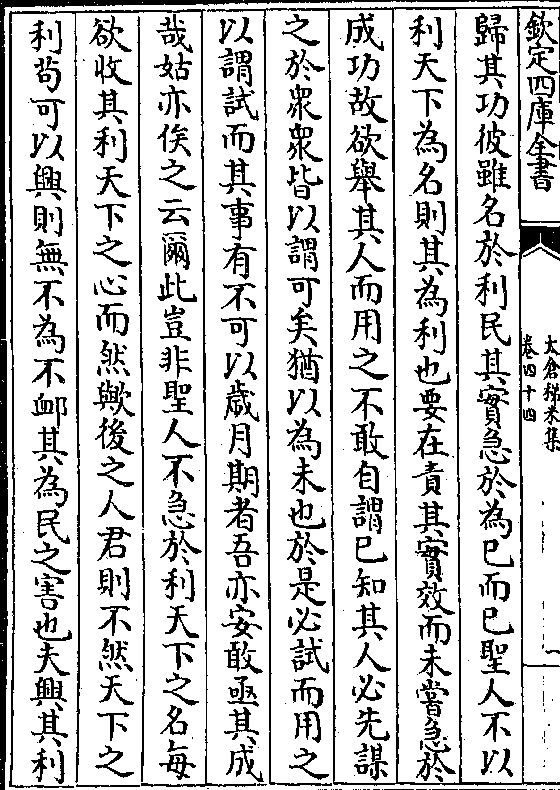 欽定四庫全書
太倉稊米集
卷四十四
一
歸其功彼雖名於利民其實急於為已而已聖人不以
利天下為名則其為利也要在責其實效而未嘗急於
成功故欲舉其人而用之不敢自謂已知其人必先謀
之於衆衆皆以謂可矣猶以為未也於是必試而用之
以謂試而其事有不可以歲月期者吾亦安敢亟其成
哉姑亦俟之云爾此豈非聖人不急於利天下之名每
欲收其利天下之心而然歟後之人君則不然天下之
利苟可以興則無不為不衈其為民之害也夫興其利